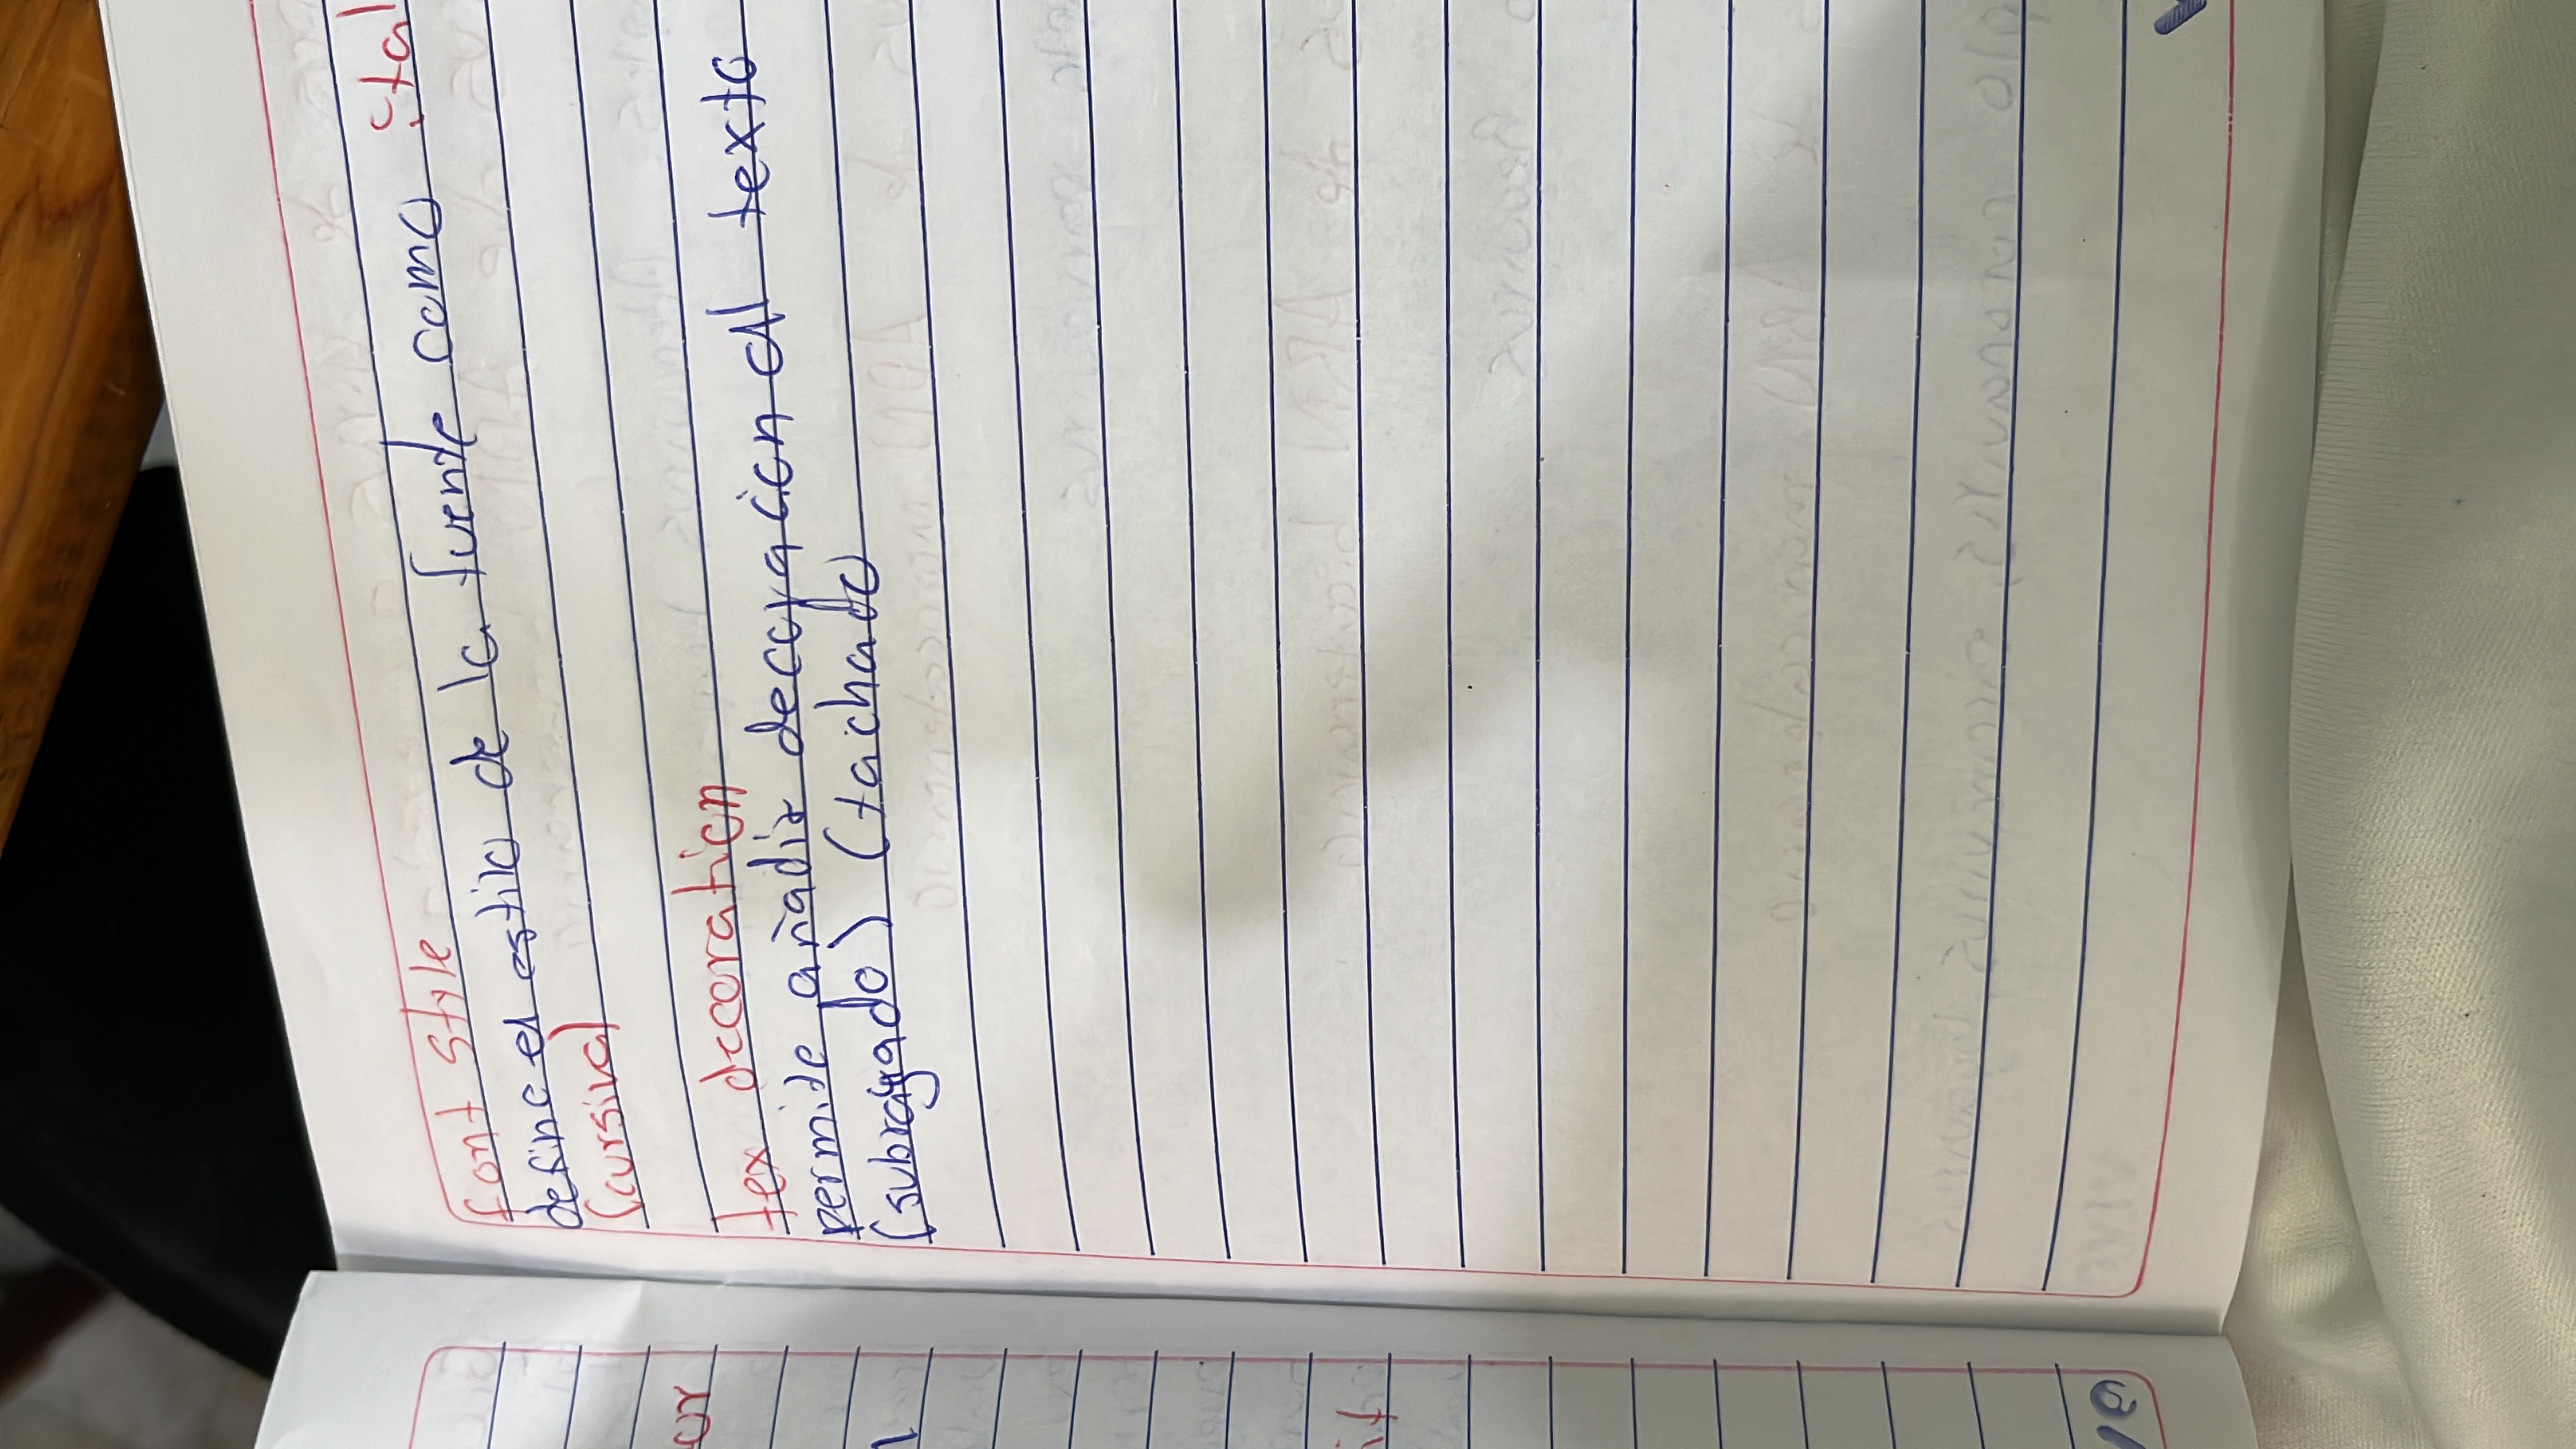 font Style
define el estilo de la fuente como
(cursiva)
tex decoration
permite añadir decoración al texto
(subrayado) (tachado